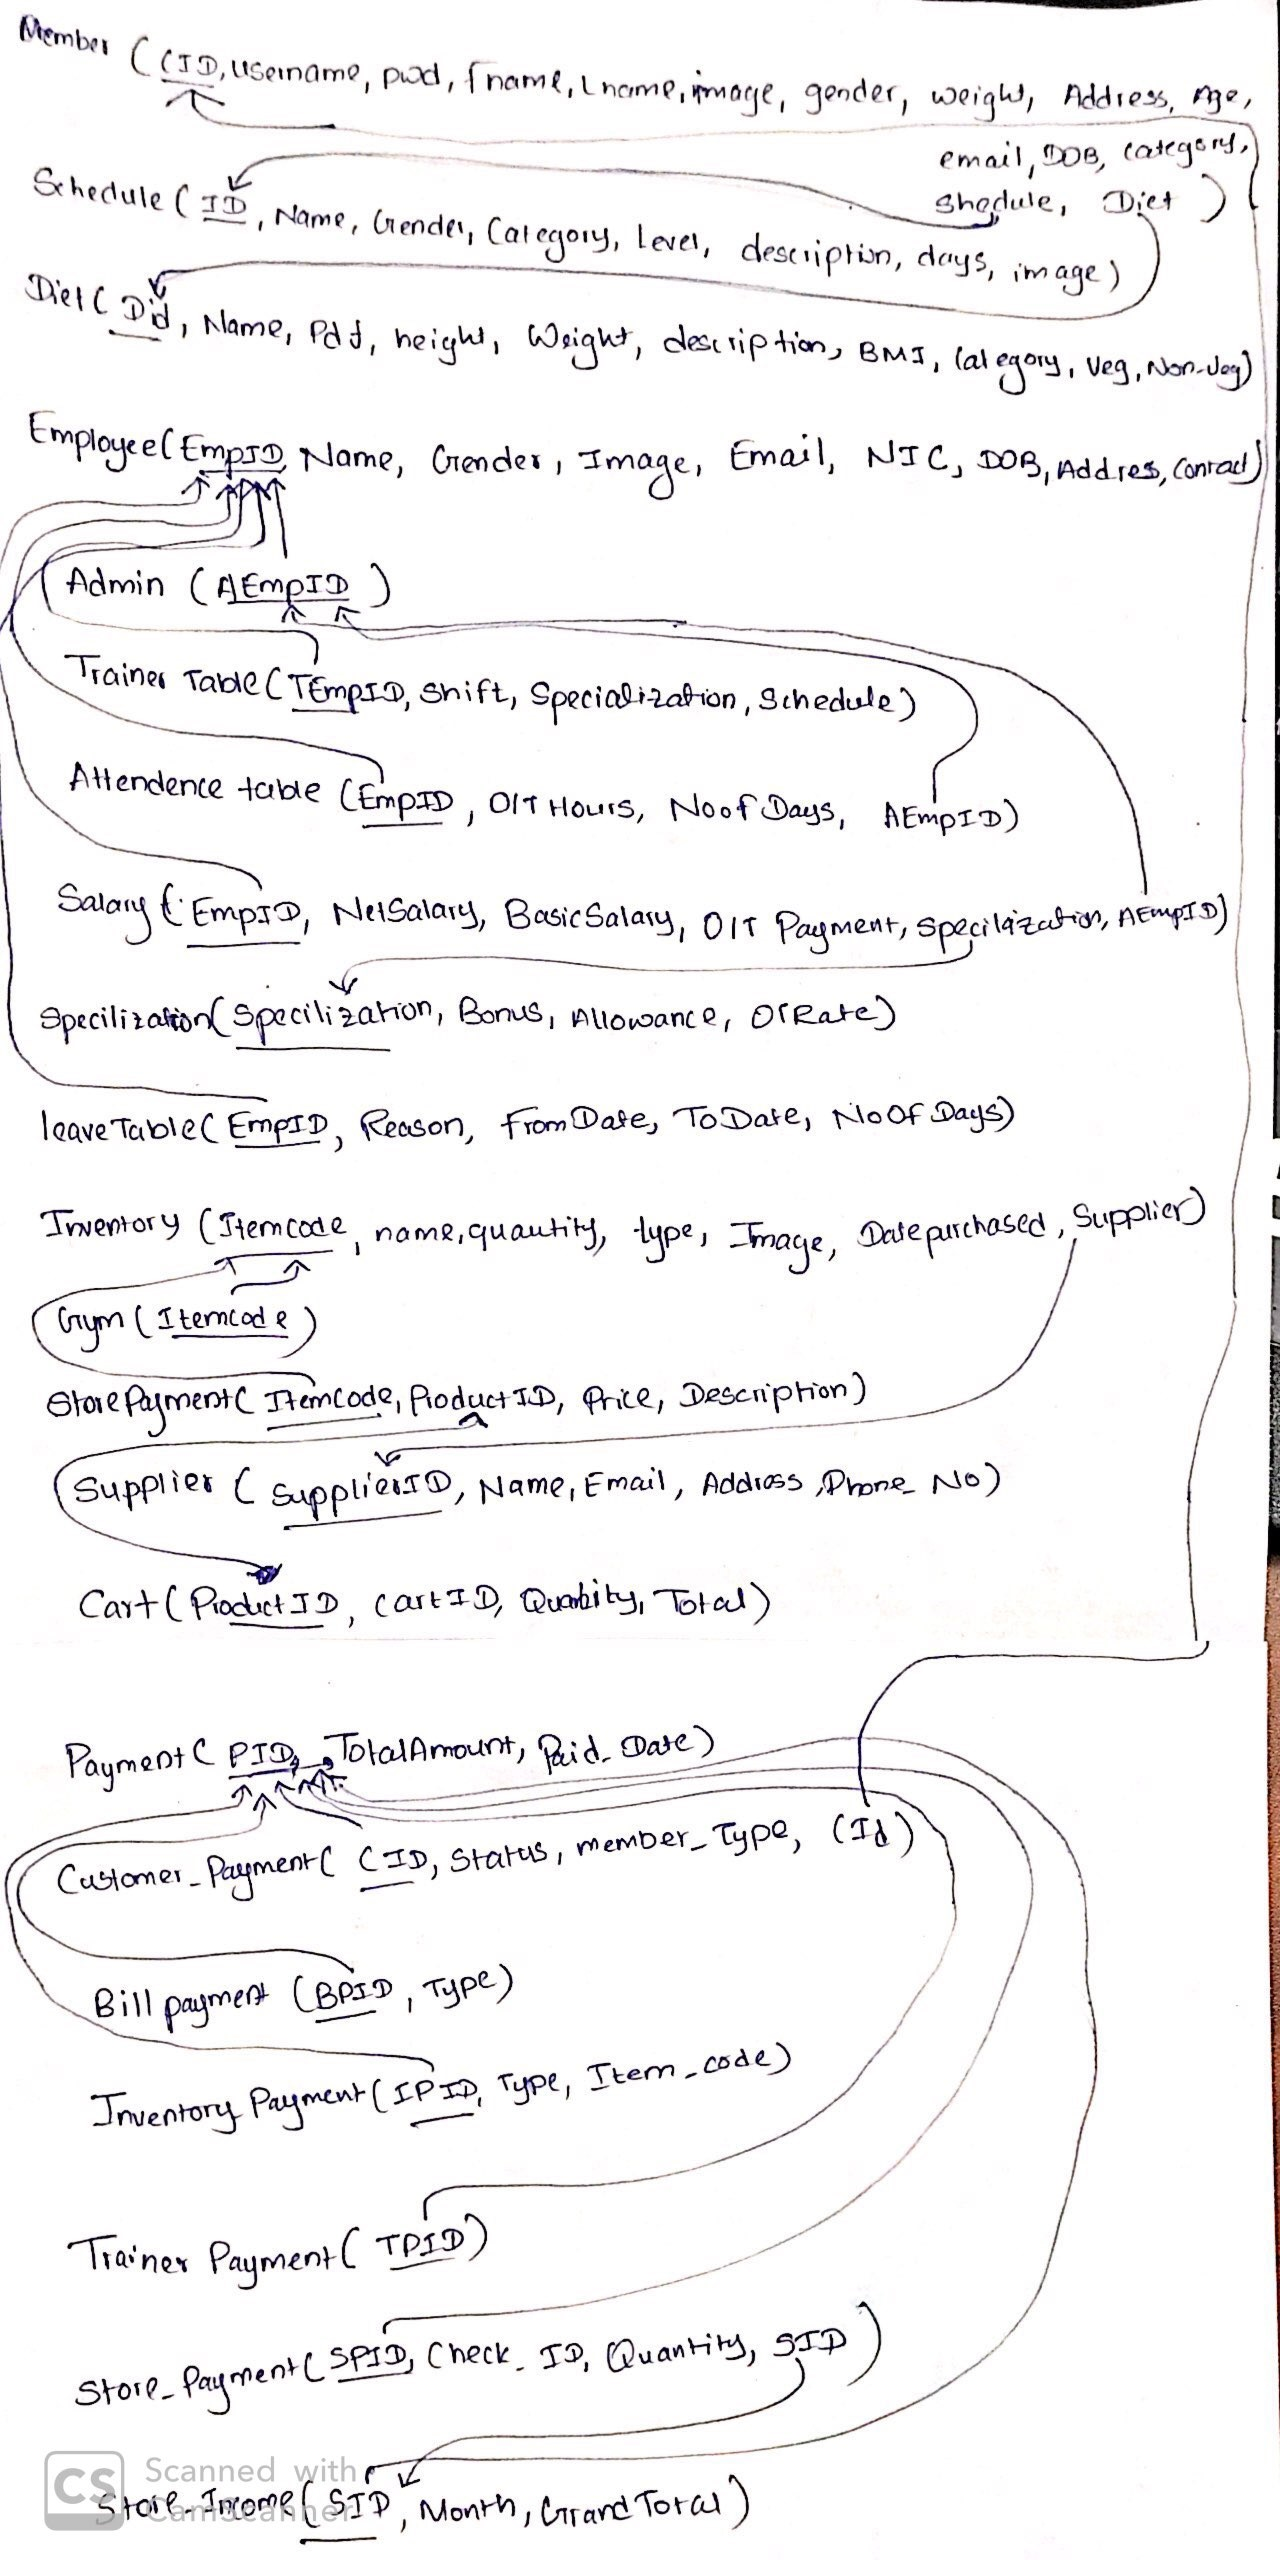 Member (CID, username, pwd, fname, Lname, image, gender, weight, Address, Age,
email, DOB, category,
Shedule, Diet)
Schedule (ID, Name, Gender, Category, Level, description, days, image)
Diet (Did, Name, Pdf, height, Weight, description, BMI, Category, Veg, Non-Veg)
Employee (EmpID, Name, Gender, Image, Email, NIC, DOB, Addres, Contact)
Admin (AEmpID)
Trainer Table (TEmpID, Shift, Specialization, Schedule)
Attendence table (EmpID, O/T Hours, No of Days, AEmpID)
Salary (EmpID, NetSalary, Basic Salary, O/T Payment, Specilization, AEmpID)
Specilization (Specilization, Bonus, Allowance, OTRate)
leave Table (EmpID, Reason, From Date, To Date, No Of Days)
Inventory (Itemcode, name, quantity, type, Image, Date purchased, Supplier)
Gym (Itemcode)
Store Payment (Itemcode, Product ID, Price, Description)
Supplier (SupplierID, Name, Email, Address, Phone_No)
Cart (Product ID, Cart ID, Quantity, Total)
Payment (PID, TotalAmount, Paid_Date)
Customer_Payment (CID, Status, member_Type, (Id)
Bill payment (BPID, Type)
Inventory Payment (IPID, Type, Item_code)
Trainer Payment (TPID)
Store_Payment (SPID, Check_ID, Quantity, SID)
Store_Income (SID, Month, Grand Total)
CS Scanned with
CamScanner